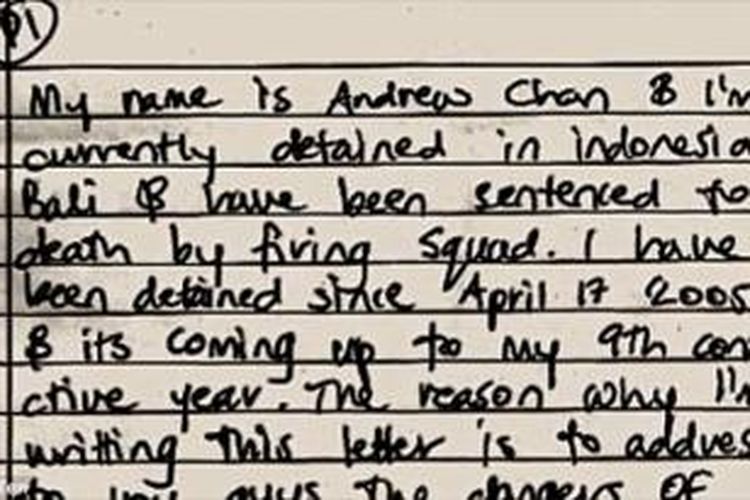 P1
My name is Andrew Chan & I'm
currently detained in indonesia
Bali & have been sentenced to
death by firing squad. I have
been detained since April 17 2005
& its coming up to my 9th con
ctive year. The reason why I'm
writting this letter is to addres
to you guys the dangers OF